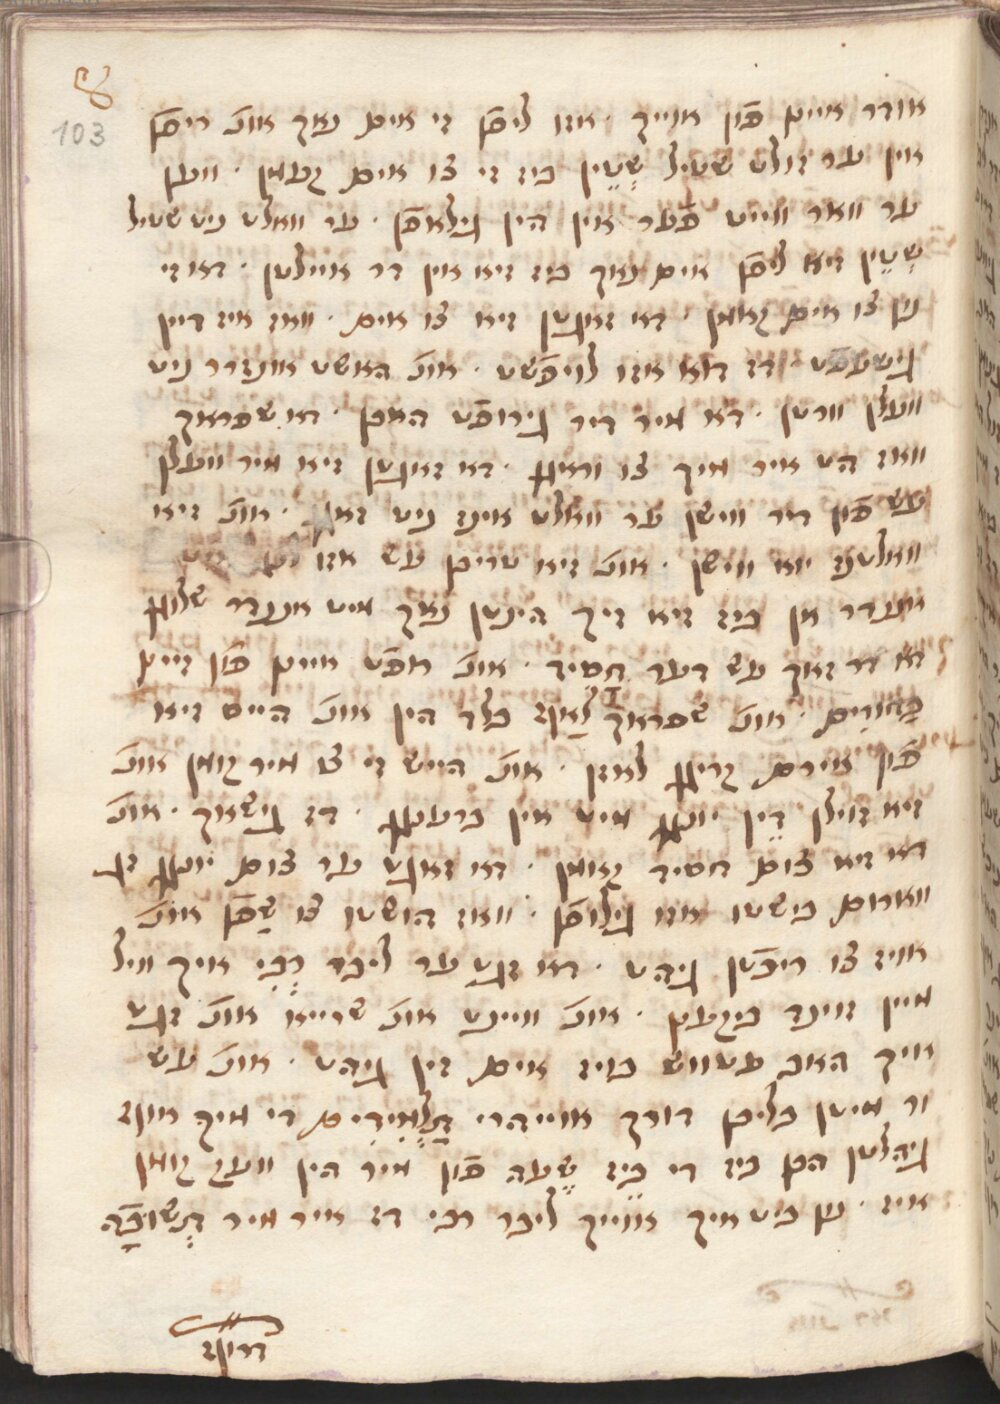 103
אודר איינם פֿון אוייך · אזו ליפֿן זי אים נאך אונ ריפֿן
אין ער זולט שטיל שְטֵין ביז זי צו אים קעמן · ווען
ער וואר ווייט פֿער אין הין גילאפֿן · ער וואלט ניט שטיל
שְטֵין זיא ליפֿן אים נאך ביז זיא אין דר אויילטן · דא זי
נון צו אים קאמן · דא זאגטן זיא צו אים · וואז איז דיין
גישעפֿט · דז דוא אזו לויפֿשט · אונ האשט אונזרר ניט
וועלן ווארטן · דא מיר דיר גירופֿט האבן · דא שפראך
וואז הט איר מיך צו וראגן · דא זאגטן זיא מיר וועלן
עש פֿון דיר ווישן ער וואלט אינז ניט זאגן · אונ זיא
וואלטנז יוא ווישן · אונ זיא טריבן עש אזו
אנדר אן ביז זיא זיך הינטן נאך מיט אננדר שלוגן
דא זר זאך עש דער חָסִיד · אונ רופֿט איינם פֿון זיינן
בַּחוּרִים · אונ שפראך לַאוּף באלד הין אונ הייס זיא
פֿון אירם קריגן לאזן · אונ הייש זי צו מיר קומן אונ
זיא זוילן דֵין יונגן מיט אין ברענגן · דז גישאך · אונ
דא זיא צום חסיד קאמן · דא זאגט ער צום יונגן זג
ווארום בישטו אזו גילופֿן · וואז הושטו צו שַפֿן אונ
אויז צו ריכֿטן גיהט · דא זגט ער ליבר רְבִי איך וויל
מיין זוינד ביקענן · אונ וויינט אונ שרייא אונ זגט
איך האב עטווש בויז אים זין גיהט · אונ עש
ור מיטן בליבן דורך אוייהרי תַלְמִידִים די מיך אונז
גיהלטן הבן ביז די בֵיז שָעָה פֿון מיר הין וועג קומן
איז · נון ביט איך אוייך ליבר רבי דז איר מיר תְשוּבָה